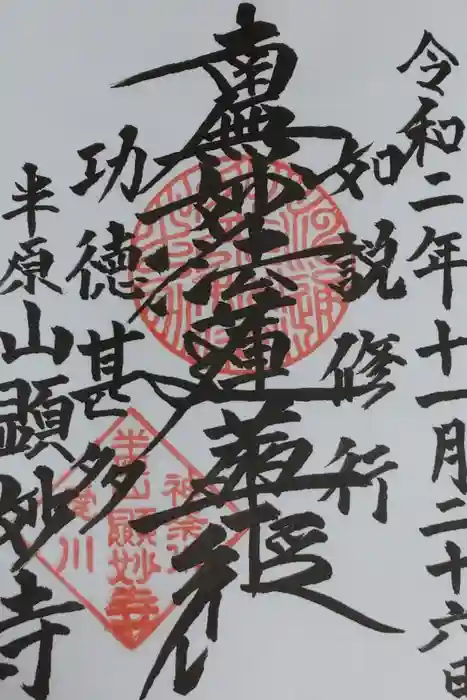 令和二年十一月二十六日
如説修行
南無妙法蓮華経
功徳甚多
半原山顕妙寺
神奈川
半原山顕妙寺
愛川